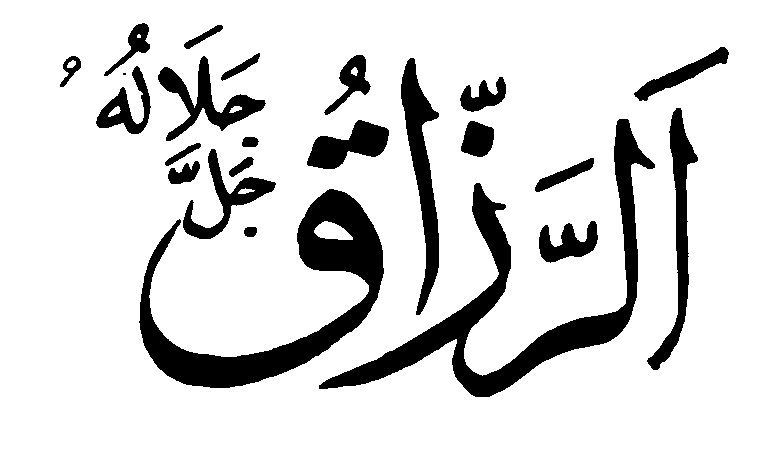 اَلرَّزَّاقُ
جَلَّ جَلَالُهُ